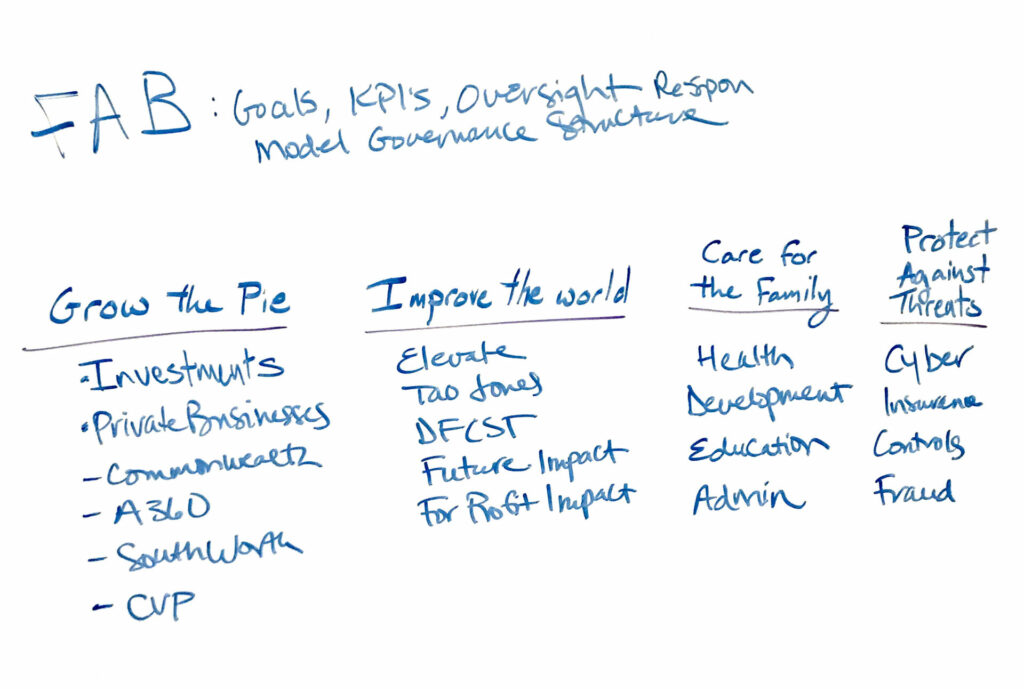 FAB: Goals, KPI's, Oversight Respon
Model Governance Structure
Grow the Pie
• Investments
• Private Businesses
- Commonwealth
- A360
- SouthWorth
- CVP
Improve the world
Elevate
Tao Jones
DFCST
Future Impact
For Profit Impact
Care for
the Family
Health
Development
Education
Admin
Protect
Against
Threats
Cyber
Insurance
Controls
Fraud